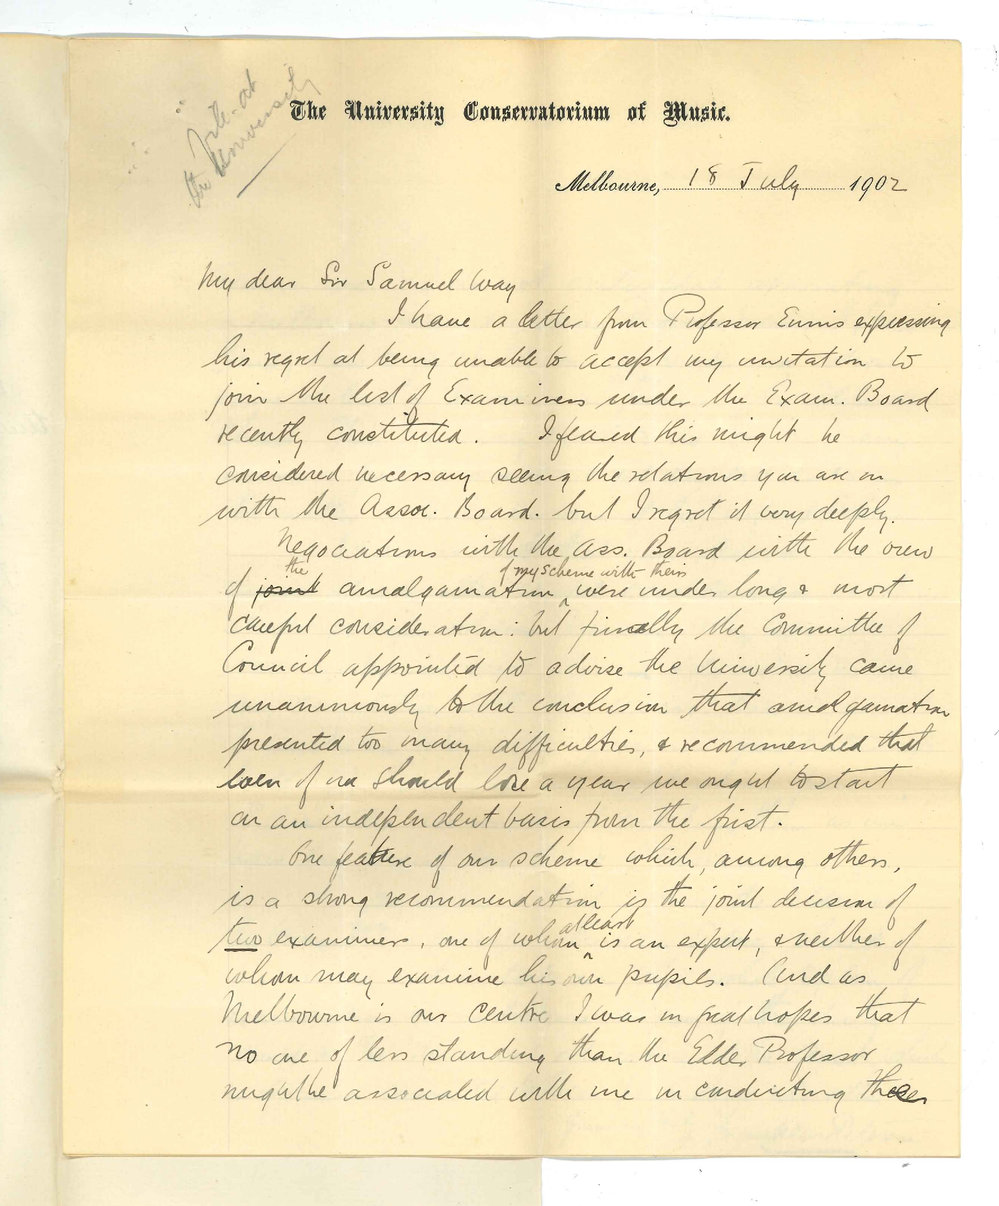 file at
the University
The University Conservatorium of Music.
Melbourne, 18 July 1902
My dear Sir Samuel Way
I have a letter from Professor Ennis expressing
his regret at being unable to accept my invitation to
join the list of Examiners under the Exam. Board
recently constituted. I feared this might be
considered necessary seeing the relations you are on
with the Assoc. Board. but I regret it very deeply.
Negociations with the Ass. Board with the view
the of my scheme with theirs
of joint amalgamation were under long & most
careful consideration: but finally the Committee of
Council appointed to advise the University came
unanimously to the conclusion that amalgamation
presented too many difficulties, & recommended that
even if we should lose a year we ought to start
on an independent basis from the first.
One feature of our scheme which, among others,
is a strong recommendation is the joint decision of
at least
two examiners, one of whom is an expert, & neither of
whom may examine his own pupils. And as
Melbourne is our centre I was in great hopes that
no one of less standing than the Elder Professor
might be associated with me in conducting these